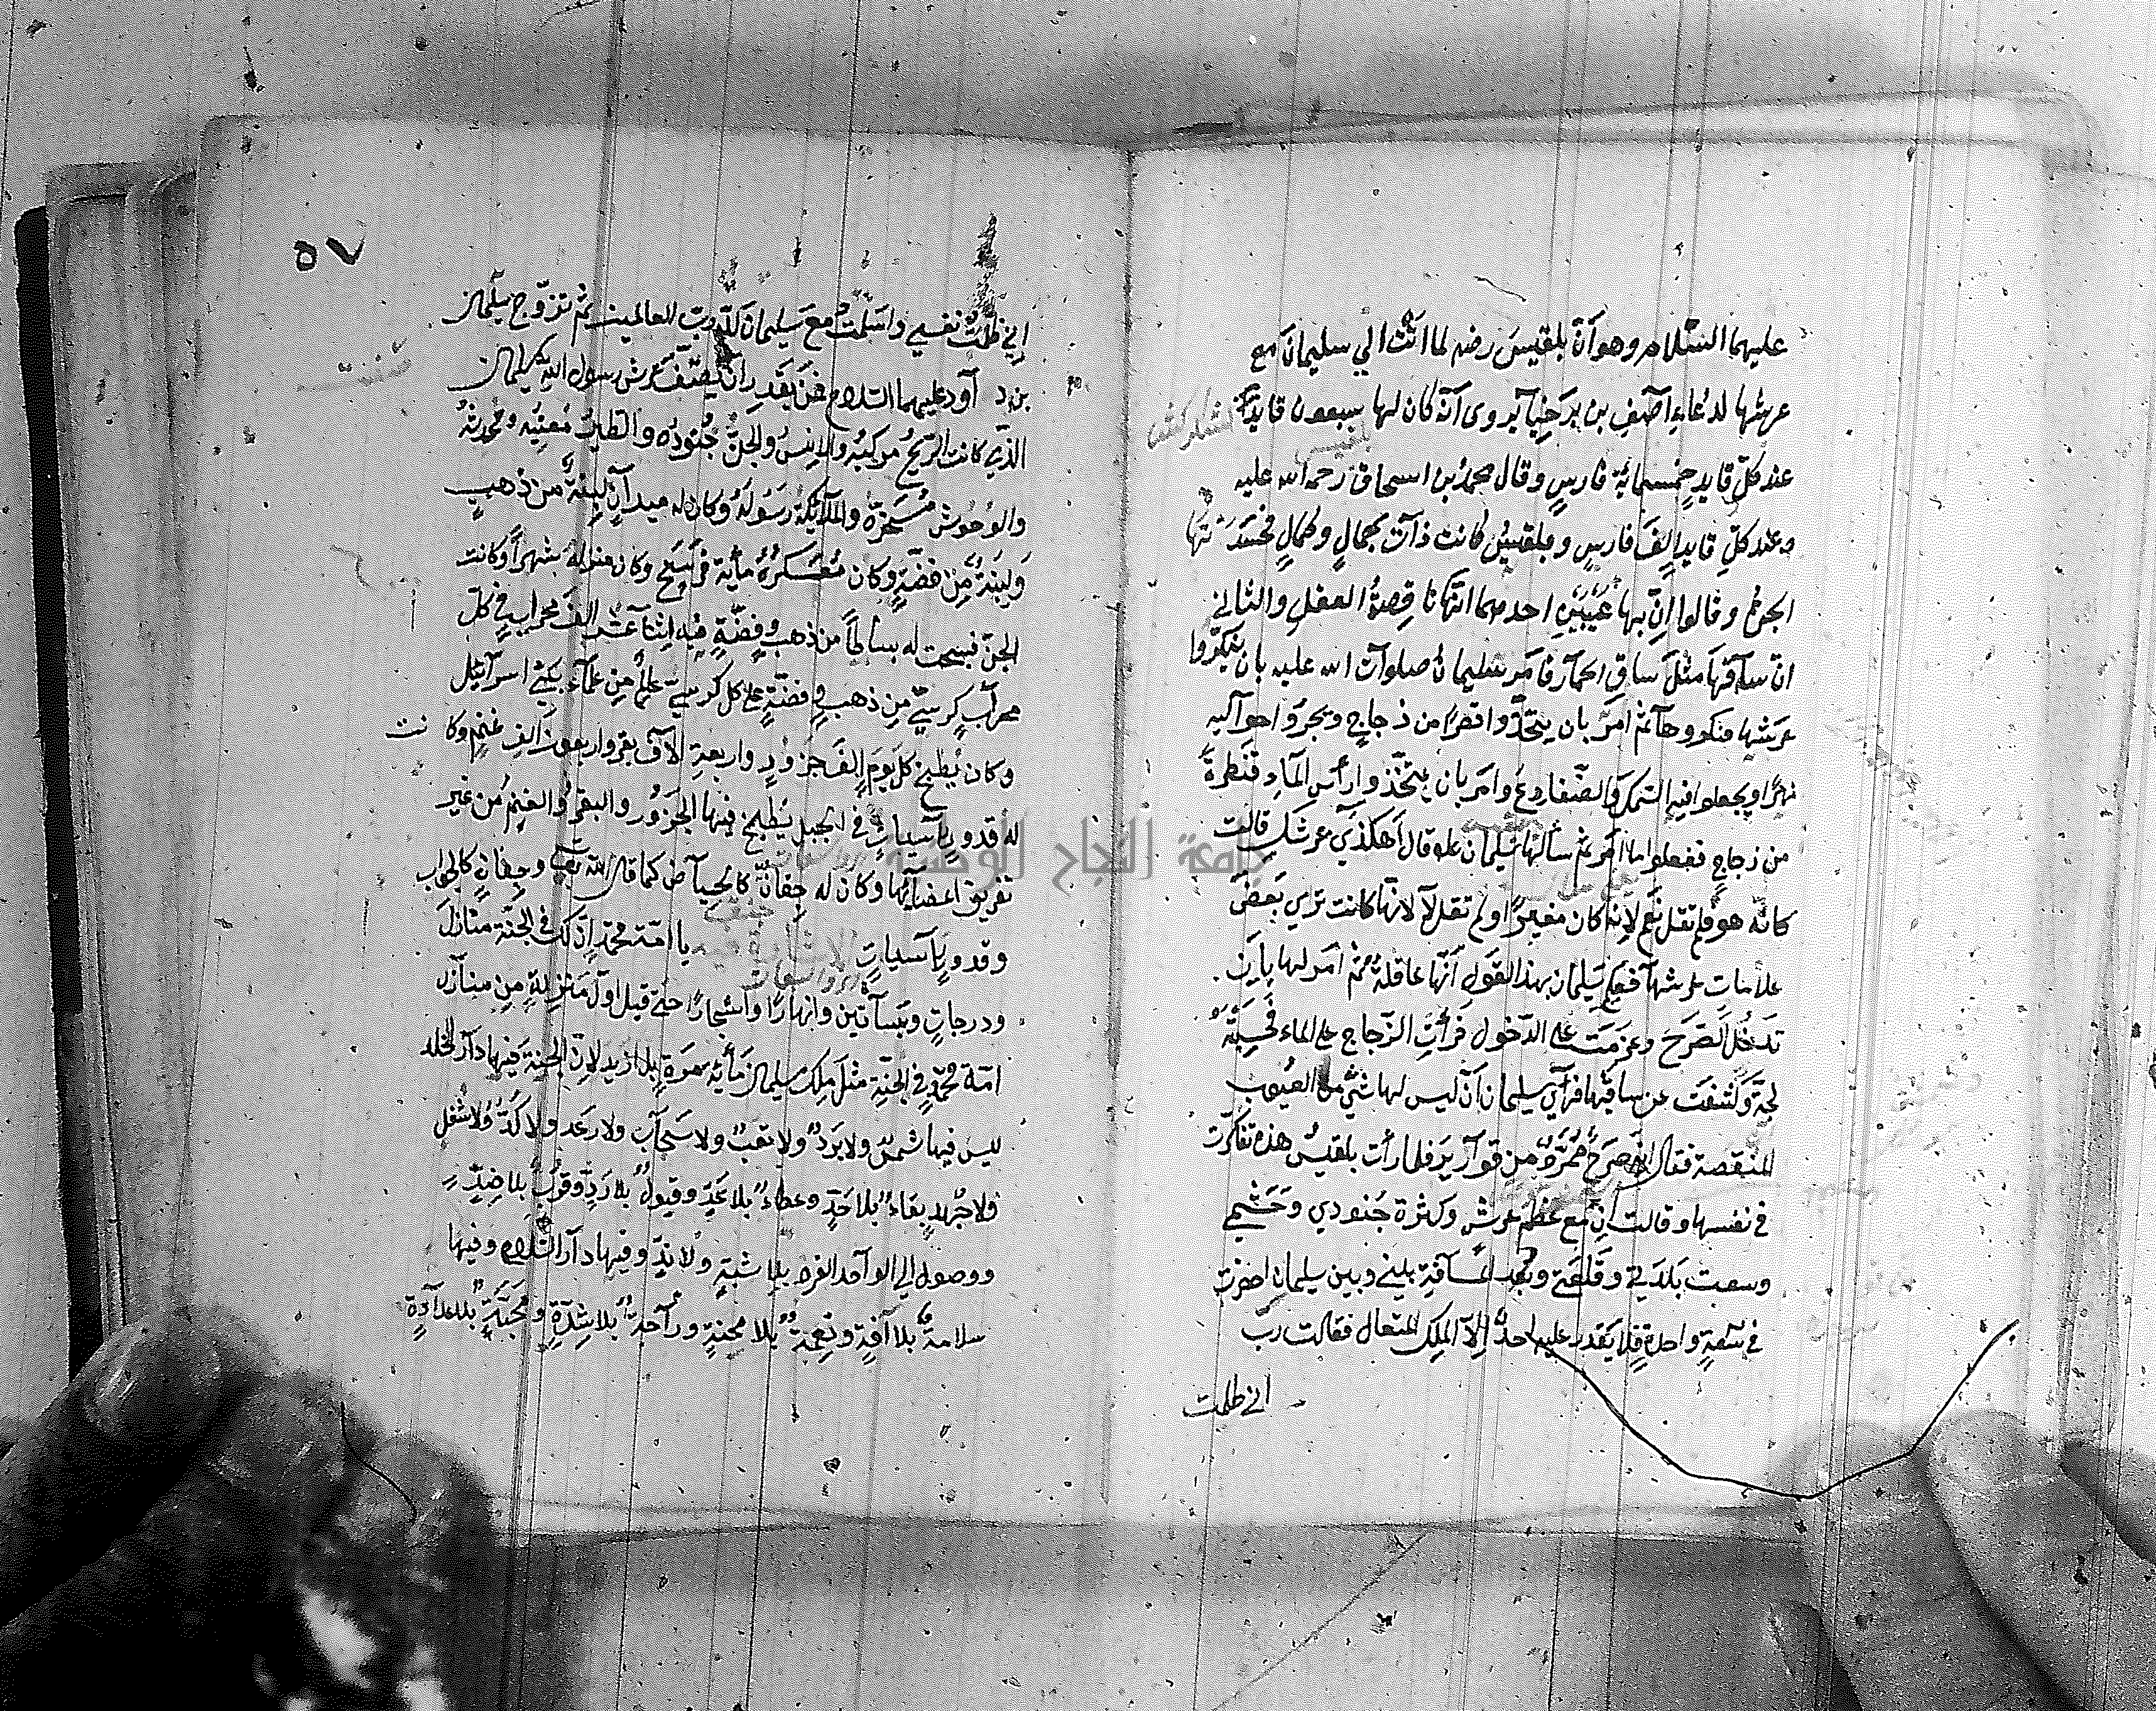 عليهما السلام وهو أن بلقيس رضه لما اتت الي سليمان مع
عرشها لدعاء آصف بن برخيا يروى أنه كان لها سبعون قايدا
عند كل قايد خمسمائة فارس وقال محمد بن اسحاق رحمه الله عليه
وعند كل قايد الف فارس وبلقيس كانت ذات جمال وكمال فحسدتها
الجن وقالوا ان بها عيبين احدهما انها ناقصة العقل والثاني
ان ساقها مثل ساق الحمار فامر سليمان صلوات الله عليه بان ينكروا
عرشها فنكروها ثم امر بان يتخذوا قصرا من زجاج ويجروا حواليه
نهرا ويجعلوا فيه السمك والضفادع وامر بان يتخذوا رأس الماء قنطرة
من زجاج ففعلوا ما امر ثم سألها سليمان وقال أهكذي عرشك قالت
كانه هو فلم تقل نعم لانه كان مغيرا ولم تقل لا لانها كانت تري بعض
علامات عرشها فعلم سليمان بهذا القول أنها عاقلة ثم امر لها بان
تدخل الصرح وعزمت على الدخول فرأت الزجاج على الماء فحسبته
لجة وكشفت عن ساقيها فرآي سليمان أن ليس لها شئ من العيوب
المنقصة فقال انه صرح ممرد من قوارير فلما رأت بلقيس هذه تفكرت
في نفسها وقالت أني مع عظم عرشي وكثرة جنودي وحشمي
وسعت بلدتي وقلعتي وبعد مسافة بيني وبين سليمان احضرت
في سعة واحدة فلا يقدر عليه احد إلا الملك المتعال فقالت رب
اني ظلمت
٥٧
إني ظلمت نفسي واسلمت مع سليمان لله رب العالمين ثم تزوج سليمان
بن داود عليهما السلام فمن يقدر ان يصف عرش رسول الله سليمان
الذي كانت الريح مركبه والانس والجن جنوده والطير معينه ومحدثه
والوحوش مسخرة والملائكة رسوله وكان له ميدان لبنة من ذهب
ولبنة من فضة وكان معسكره مأية فرسخ وكان منزله شهرا وكانت
الجن نسجت له بساطا من ذهب وفضة فيه اثنا عشر الف محراب في كل
محراب كرسي من ذهب وفضة على كل كرسي عالم من علماء بني اسرآئيل
وكان يطبخ كل يوم الف جزور واربعة الاف بقر واربعون الف غنم وكانت
له قدور راسيات في الجبل يطبخ فيها الجزور والبقر والغنم من غير
تفريق اعضائها وكان له جفان كالحياض كما قال الله تعالى وجفان كالجواب
وقدور راسيات يا امة محمد ان لك في الجنة منازل
ودرجات وبساتين وانهارا واشجارا حتى قيل اول منزلة من منازل
امة محمد في الجنة مثل ملك سليمان مأية مرة بلا ازيد لان الجنة فيها دار الخلد
ليس فيها شمس ولا برد ولا تعب ولا سحاب ولا رعد ولا كد ولا شغل
ولا جهد بقاء بلا حد وعطاء بلا عد وقبول بلا رد وقرب بلا ضد
ووصول الي الواحد الفرد بلا شبة ولا ند وفيها دار السلام وفيها
سلامة بلا آفة ونعمة بلا محنة وراحة بلا شدة ومحبة بلا عداوة
جامعة النجاح الوطنية